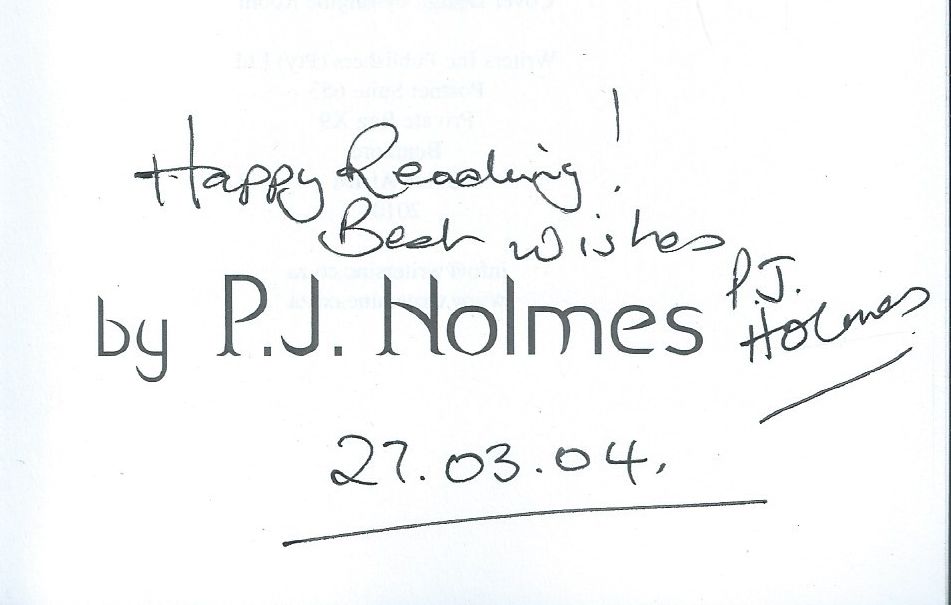 Happy Reading!
Best wishes
P.J.
Holmes
by P.J. Holmes
27.03.04.